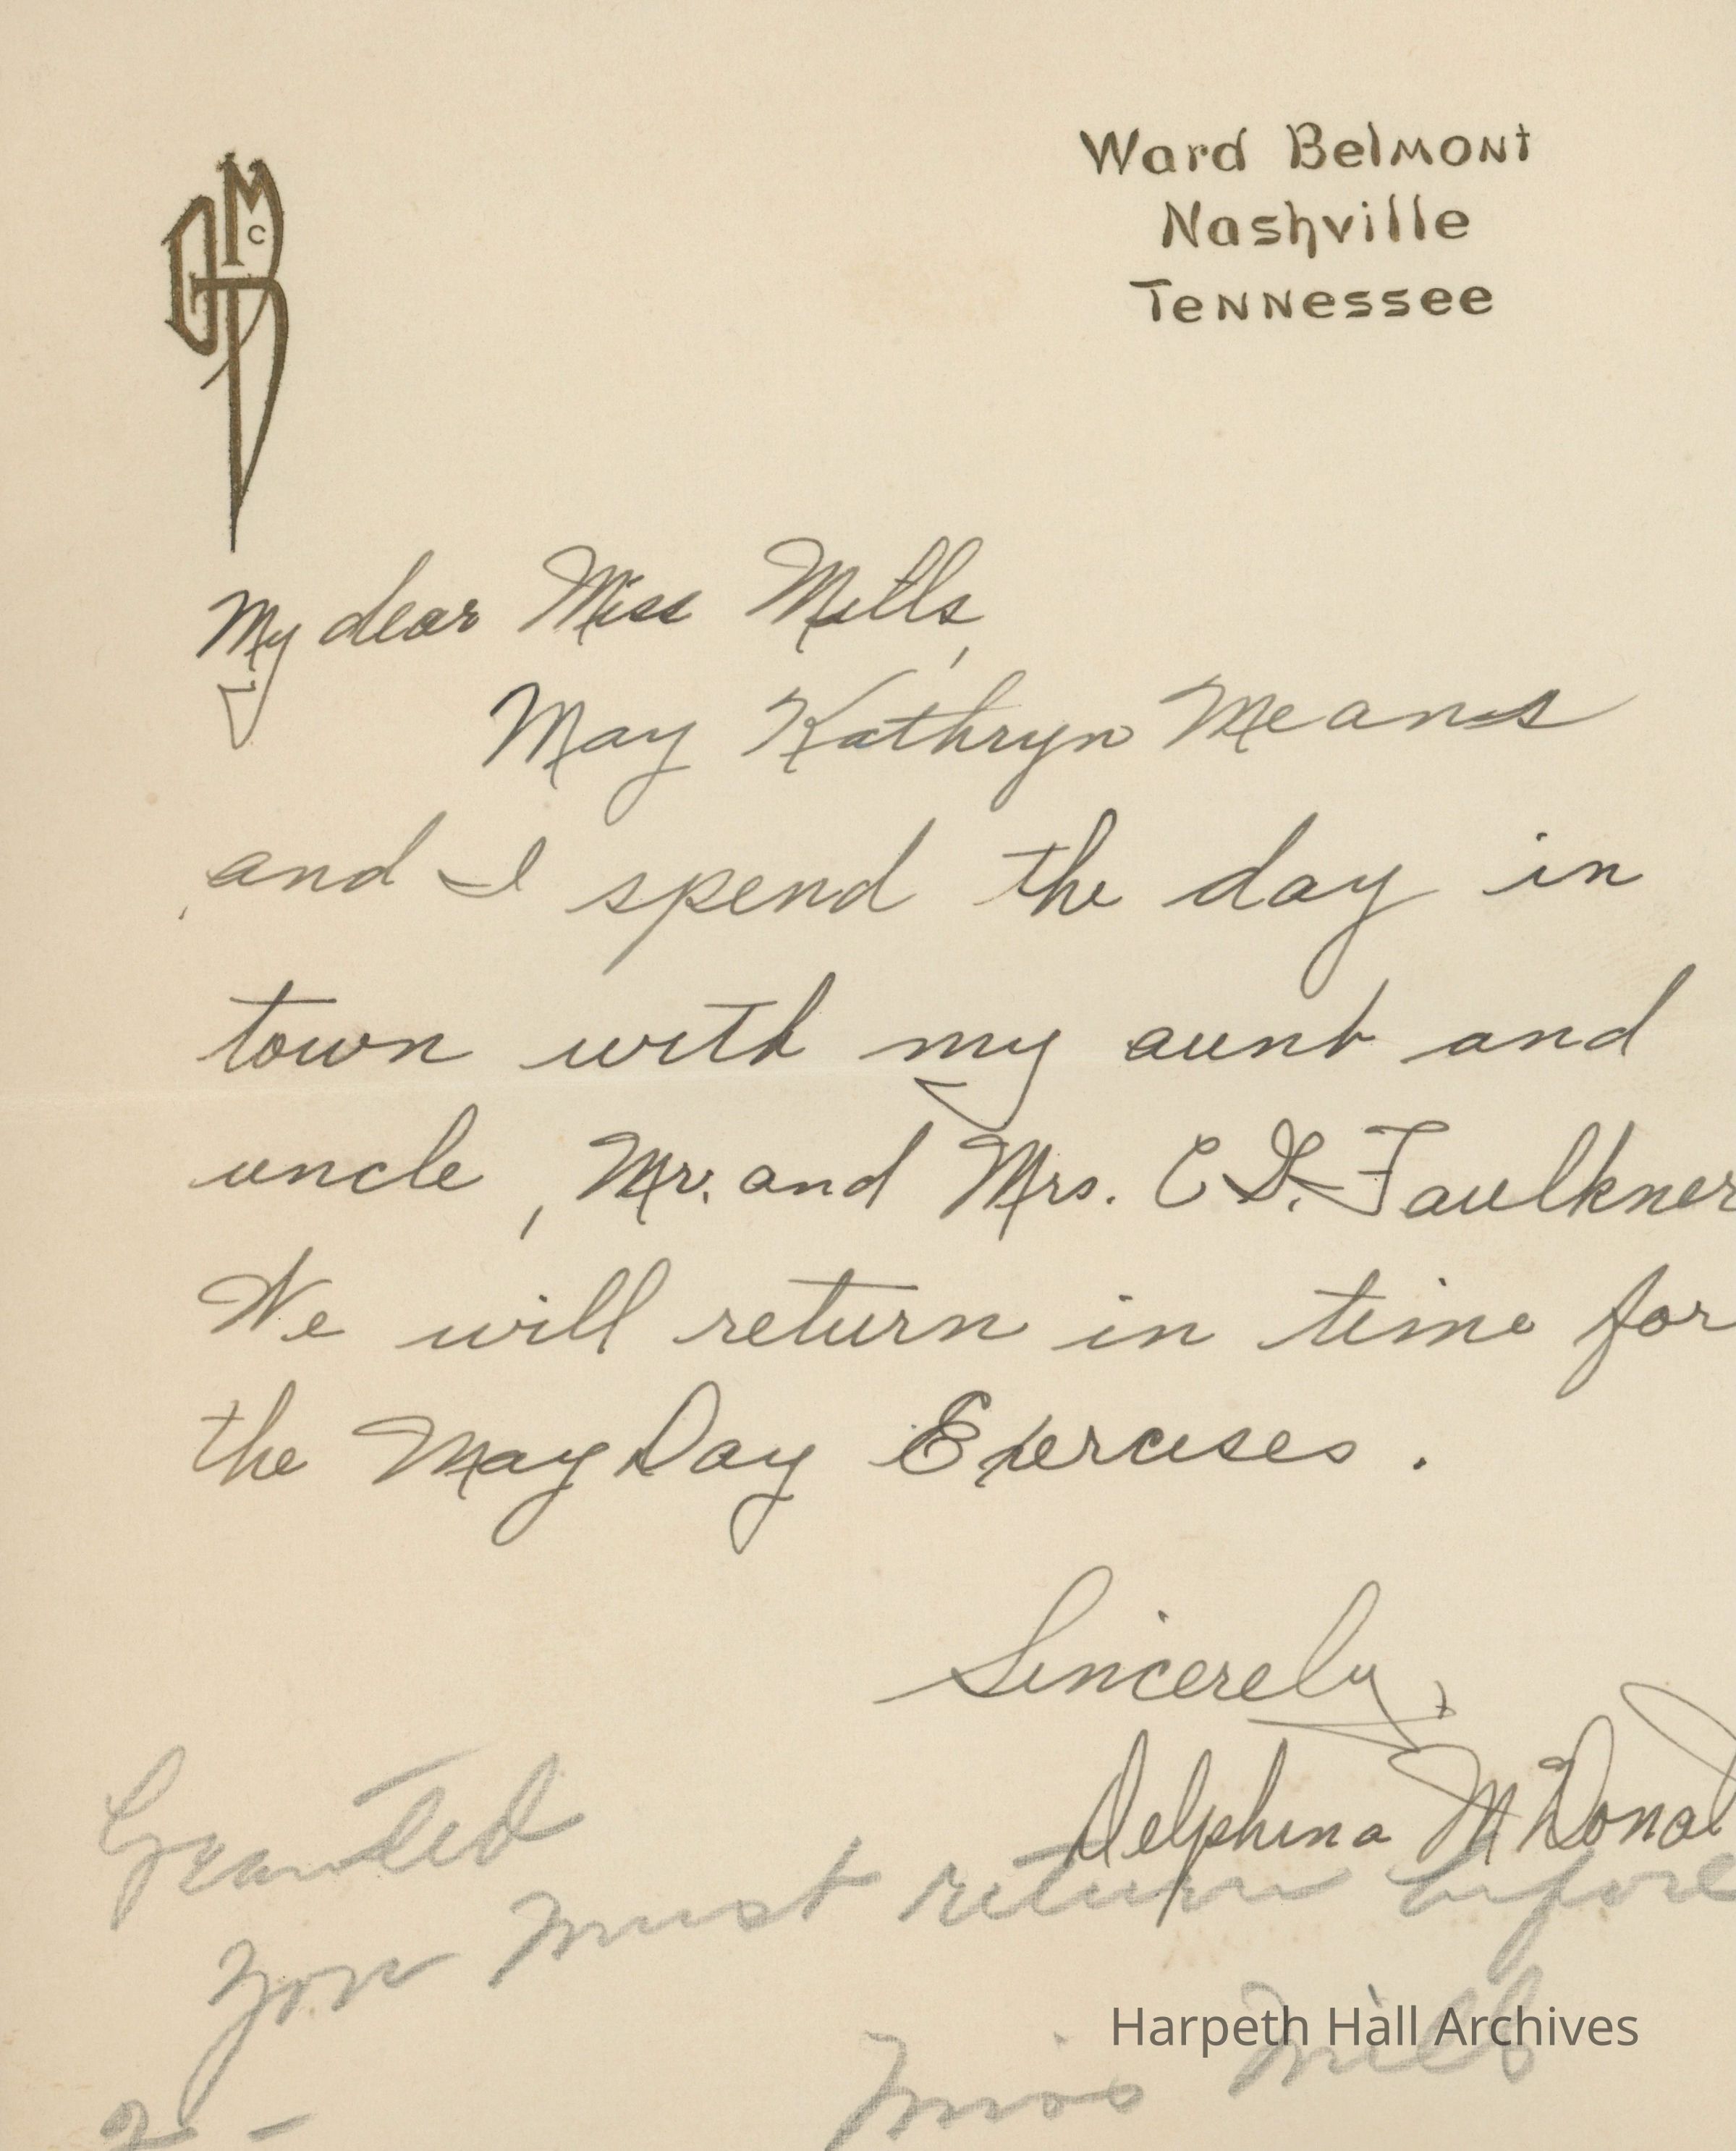 Ward Belmont
Nashville
Tennessee
My dear Miss Mills,
May Kathryn Means
and I spend the day in
town with my aunt and
uncle, Mr. and Mrs. C.D. Faulkner
We will return in time for
the May Day Exercises.
Sincerely,
Delphina McDonal
Granted
You must return before
2 -
Miss Mills
Harpeth Hall Archives